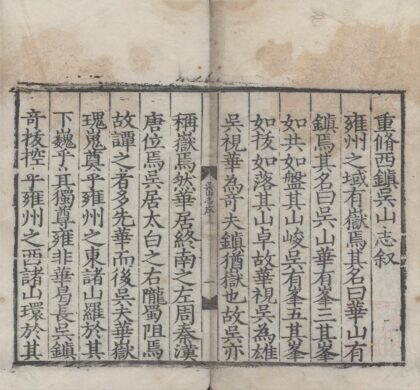 重修西鎮吳山志叙
雍州之域有嶽焉其名曰華山有
鎮焉其名曰吳山華有峯三其峯
如共如盤其山峻吳有峯五其峯
如拔如落其山卓故華視吳為雄
吳視華為奇夫鎮猶嶽也故吳亦
稱嶽焉然華居終南之左周秦漢
唐位焉吳居太白之右隴蜀阻焉
故譚之者多先華而後吳夫華嶽
瑰嵬尊乎雍州之東諸山羅於其
下巍乎其獨尊雍非華曷長吳鎮
奇拔控乎雍州之西諸山環於其